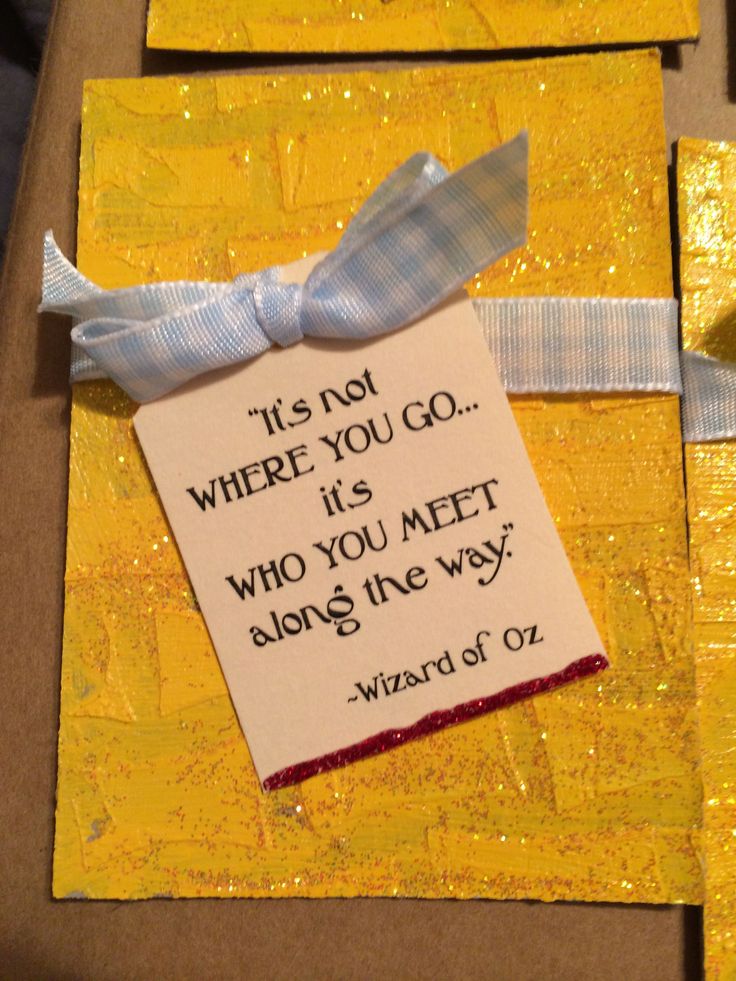 "It's not
WHERE YOU GO...
it's
WHO YOU MEET
along the way."
~Wizard of Oz